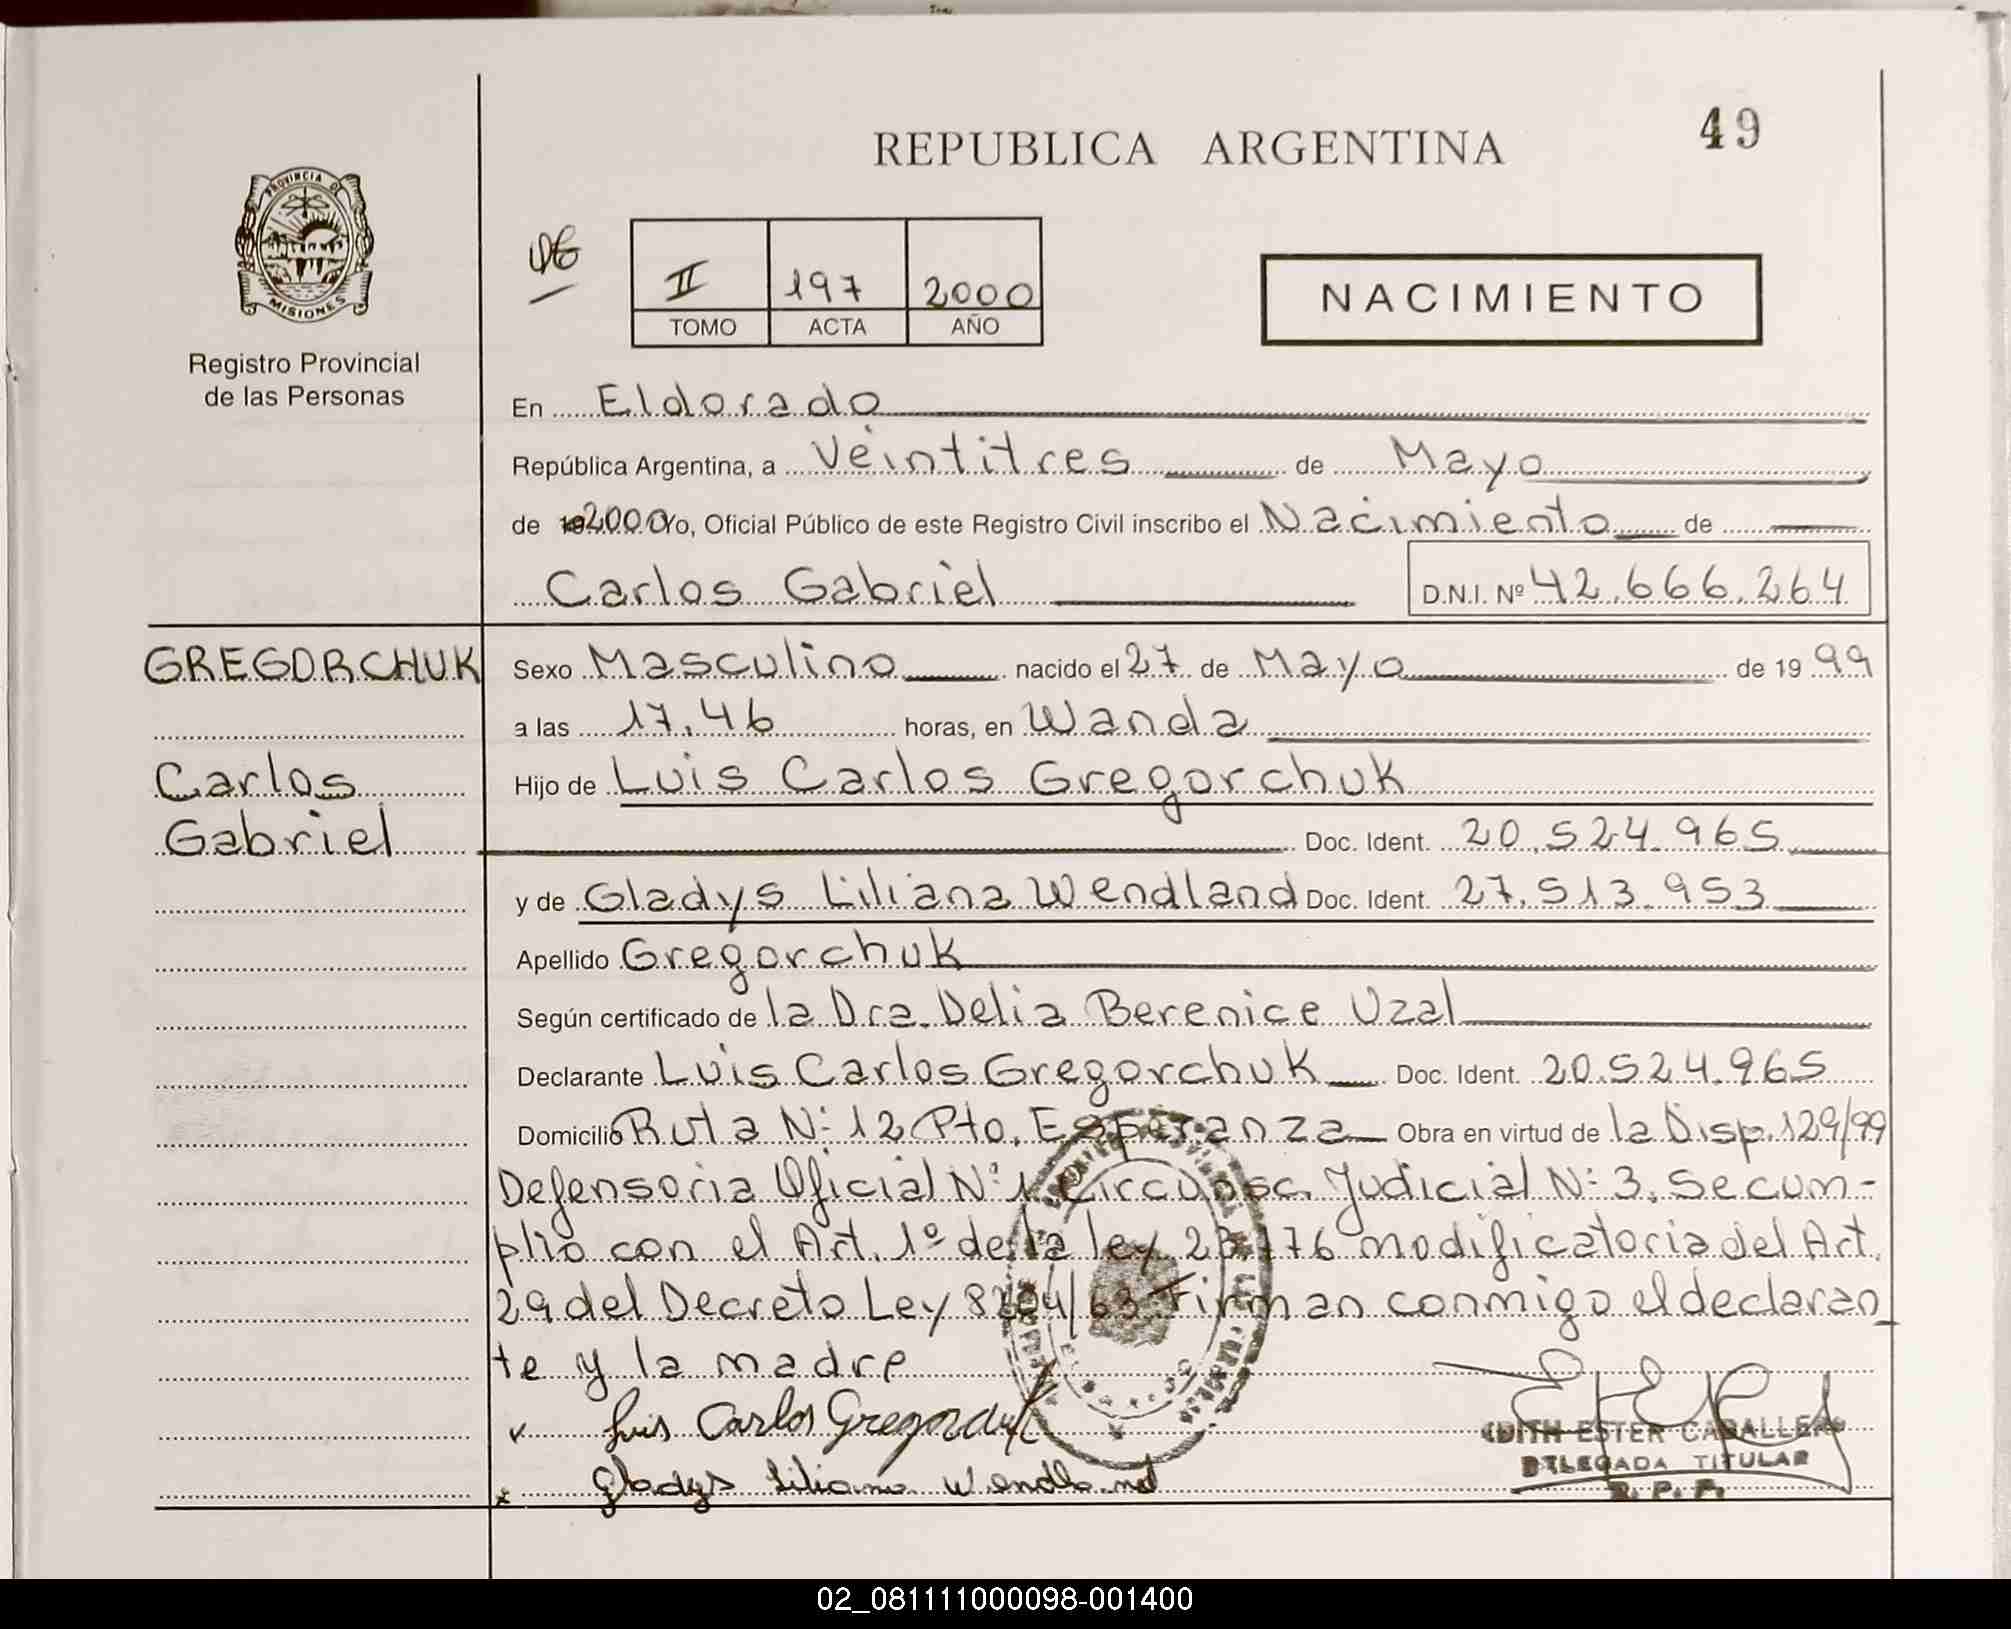 49
REPUBLICA ARGENTINA
PROVINCIA DE
MISIONES
Registro Provincial
de las Personas
II 197 2000
TOMO ACTA AÑO
NACIMIENTO
En Eldorado
República Argentina, a Veintitres de Mayo
de 2000 Yo, Oficial Público de este Registro Civil inscribo el Nacimiento de
Carlos Gabriel D.N.I. Nº 42.666.264
GREGORCHUK Sexo Masculino nacido el 27 de Mayo de 1999
a las 17.46 horas, en Wanda
Carlos Hijo de Luis Carlos Gregorchuk
Gabriel Doc. Ident. 20.524.965
y de Gladys Liliana Wendland Doc. Ident. 27.513.953
Apellido Gregorchuk
Según certificado de la Dra. Delia Berenice Uzal
Declarante Luis Carlos Gregorchuk Doc. Ident. 20.524.965
Domicilio Ruta N: 12 Pto. Esperanza Obra en virtud de la Disp. 129/99
Defensoria Oficial N: 1 Circunsc. Judicial N: 3. Se cum-
plio con el Art. 1º de la ley 23.176 modificatoria del Art.
29 del Decreto Ley 8204/63 Firman conmigo el declaran
te y la madre
Luis Carlos Gregorchuk
Gladys Liliana Wendland
EDITH ESTER CABALLERO
DELEGADA TITULAR
R. P. P.
02_081111000098-001400